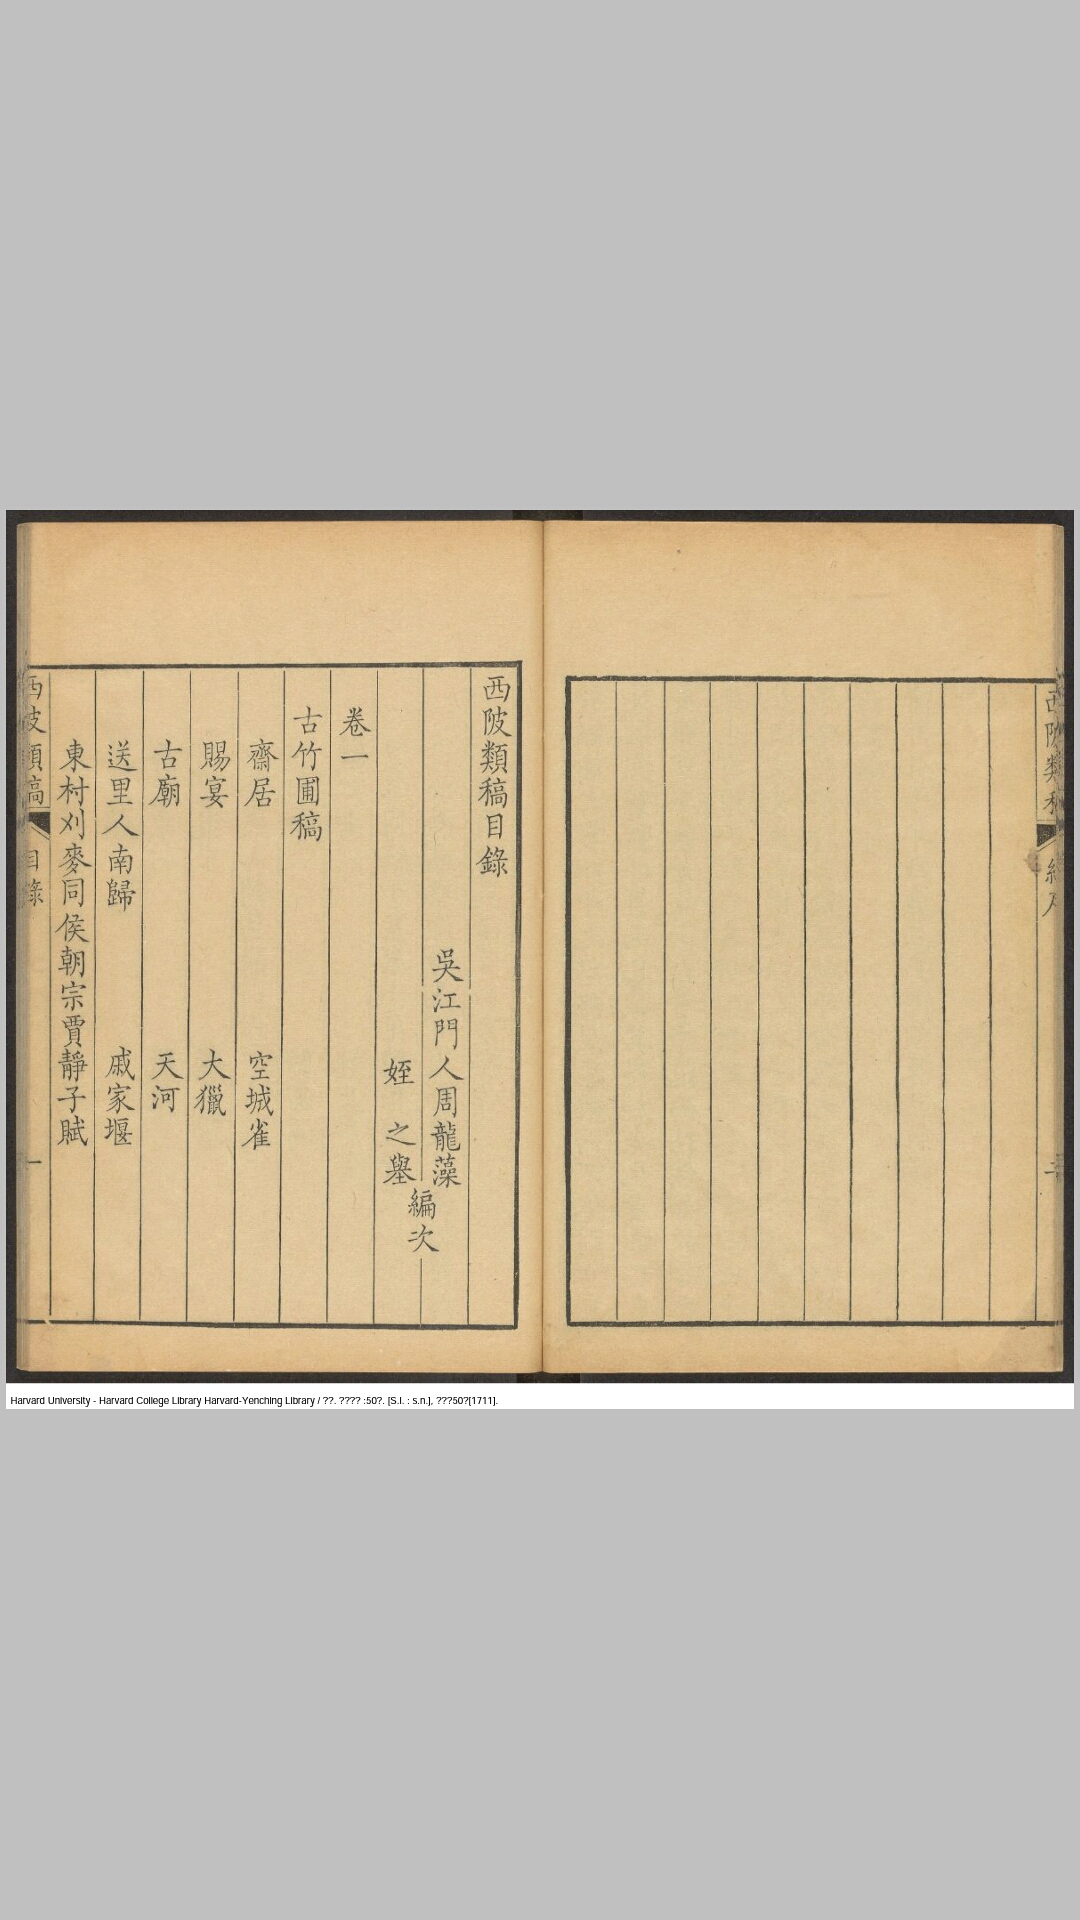 西陂類稿
西陂類稿目錄
吳江門人周龍藻
姪 之舉
編次
卷一
古竹圃稿
齋居 空城雀
賜宴 大獵
古廟 天河
送里人南歸 戚家堰
東村刈麥同侯朝宗賈靜子賦
西陂類稿 目錄 一
Harvard University - Harvard College Library Harvard-Yenching Library / ??. ???? :50?. [S.l. : s.n.], ???50?[1711].